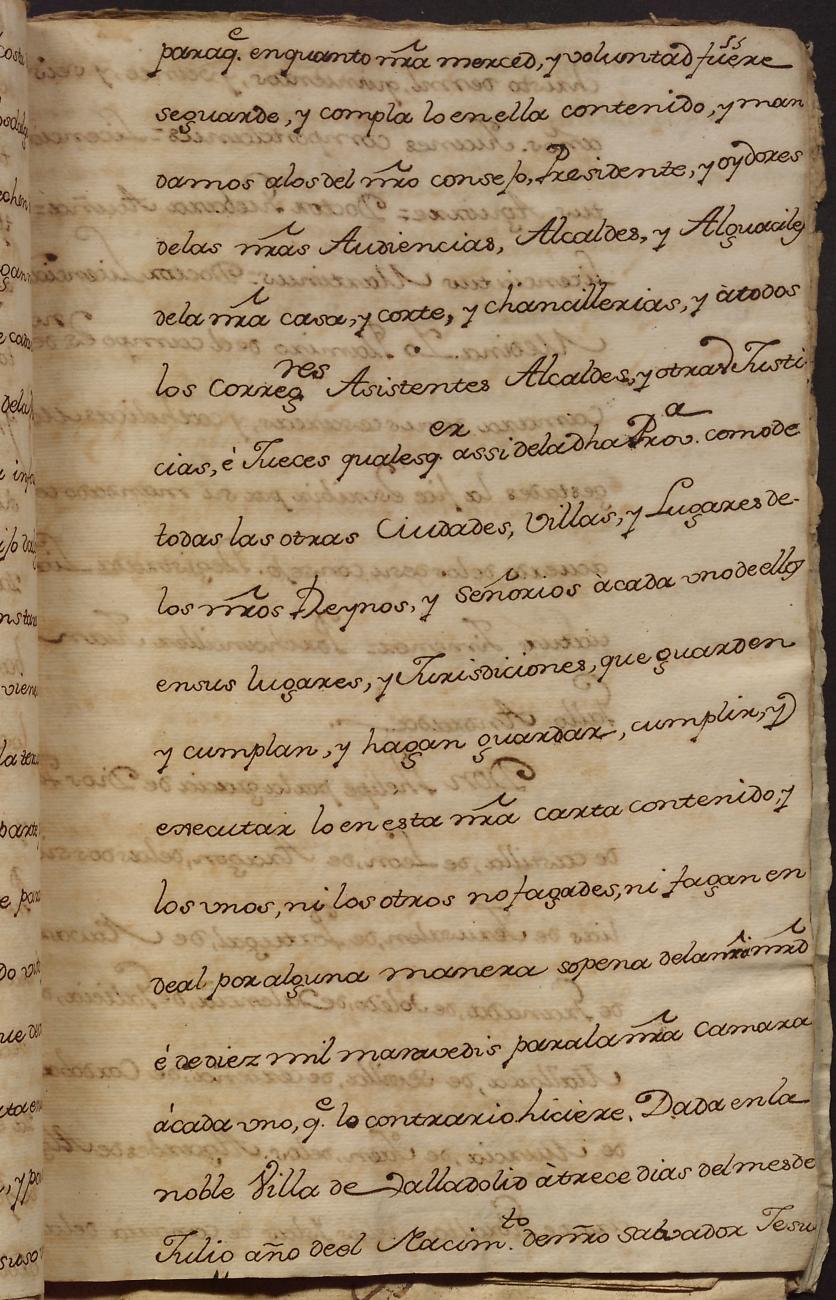 paraq.e enquanto nr̃a merced, y voluntad fuere
seguarde, y compla lo enella contenido, y man
damos alos del nr̃o consejo, Presidente, y oydores
delas nr̃as Audiencias, Alcaldes, y Alguaciles
dela nr̃a casa, y corte, y chancillerias, y àtodos
los Correg.res Asistentes Alcaldes, y otras Justi
cias, é Jueces qualesq.er assi dela dha Prov.a como de
todas las otras Ciudades, Villas, y Lugares de
los nr̃os Reynos, y Señorios àcada vno de ellos
ensus lugares, y Jurisdiciones, que guarden
y cumplan, y hagan guardar, cumplir, y
executar lo en esta nr̃a carta contenido, y
los vnos, ni los otros no fagades, ni fagan en
deal por alguna manera sopena dela nr̃a mr̃d
é de diez mil maravedis para la nr̃a Camara
ácada vno, q.e lo contrario hiciere. Dada en la
noble Villa de Valladolid à trece dias del mes de
Julio año deel Nacim.to de nr̃o Salvador Jesu